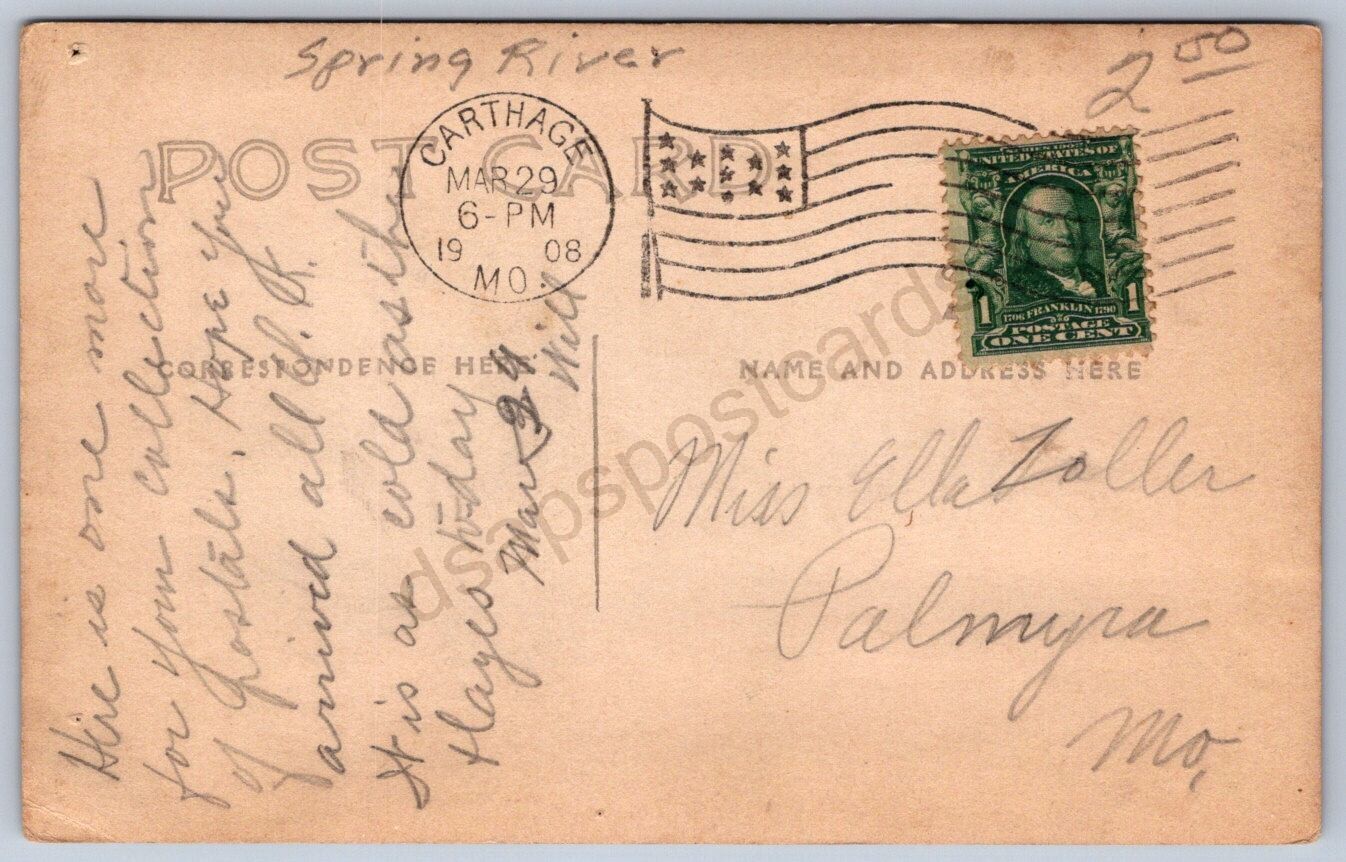 Spring River
2 50
POST CARD
CARTHAGE
MAR 29
6-PM
19 08
MO.
SERIES 1902
UNITED STATES OF
AMERICA
1 1
1706 FRANKLIN 1790
POSTAGE
ONE CENT
CORRESPONDENCE HERE
NAME AND ADDRESS HERE
Here is one more
for your collection
of postals. Hope you
arrived all O.K.
It is as cold as the
Hayes today
Mar 29 Will
Miss Ella Zoller
Palmyra
Mo,
dsapspostcards